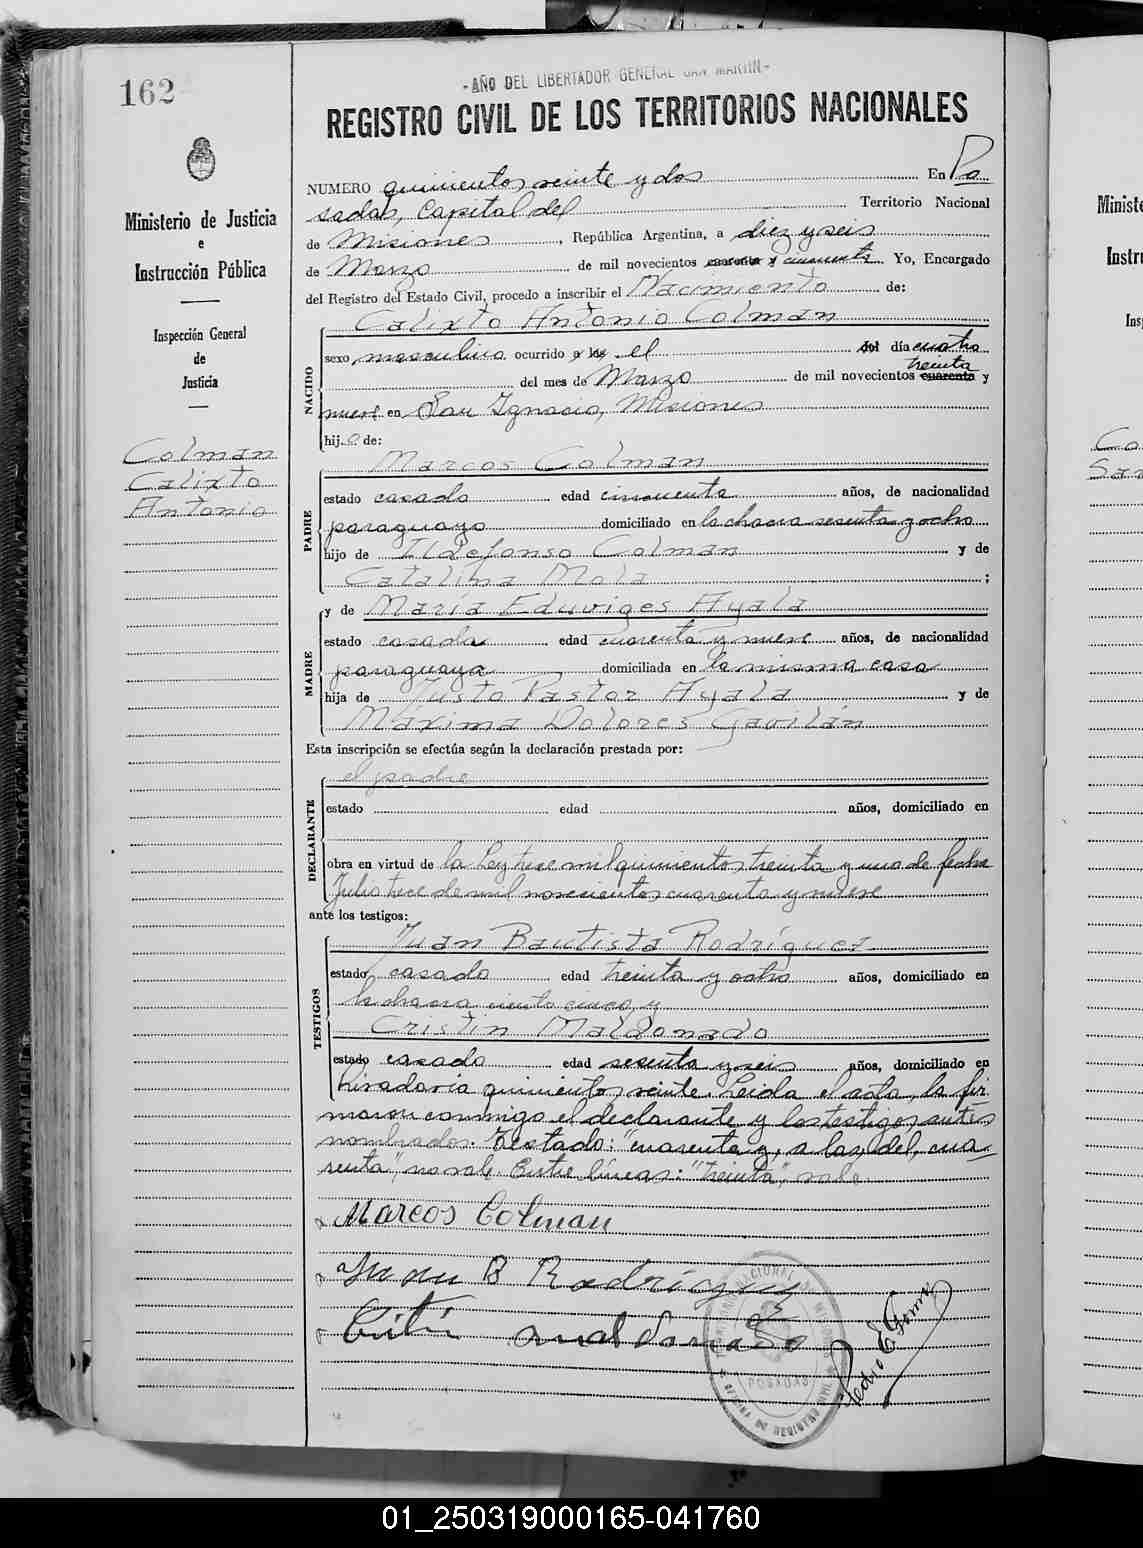 162
- AÑO DEL LIBERTADOR GENERAL SAN MARTIN -
REGISTRO CIVIL DE LOS TERRITORIOS NACIONALES
Ministerio de Justicia
e
Instrucción Pública
Inspección General
de
Justicia
Colman
Calixto
Antonio
NUMERO quinientos veinte y dos En Po
sadas, Capital del Territorio Nacional
de Misiones, República Argentina, a diez y seis
de Marzo de mil novecientos cuarenta y cincuenta Yo, Encargado
del Registro del Estado Civil, procedo a inscribir el Nacimiento de:
NACIDO
Calixto Antonio Colman
sexo masculino ocurrido a las el del día cuatro
treinta
del mes de Marzo de mil novecientos cuarenta y
nueve en San Ignacio, Misiones
hijo de:
PADRE
Marcos Colman
estado casado edad cincuenta años, de nacionalidad
paraguayo domiciliado en la chacra sesenta y ocho
hijo de Ildefonso Colman y de
Catalina Mola ;
MADRE
y de María Eduviges Ayala
estado casada edad cuarenta y nueve años, de nacionalidad
paraguaya domiciliada en la misma casa
hija de Justo Pastor Ayala y de
Máxima Dolores Gavilán
Esta inscripción se efectúa según la declaración prestada por:
DECLARANTE
el padre
estado edad años, domiciliado en
obra en virtud de la Ley trece mil quinientos treinta y uno de fecha
Julio trece de mil novecientos cuarenta y nueve
ante los testigos:
TESTIGOS
Juan Bautista Rodríguez
estado casado edad treinta y ocho años, domiciliado en
la chacra ciento cinco, y
Cristin Maldonado
estado casado edad sesenta y seis años, domiciliado en
Rivadavia quinientos veinte. Leída el acta, la fir
maron conmigo el declarante y los testigos antes
nombrados. Testado: "cuarenta y, a las, del, cua-
renta", no vale. Entre líneas: "treinta", vale.
Marcos Colman
Juan B Rodríguez
maldonado
Pedro E Gomez
POSADAS
Ministe
Instru
Ins
Co
San
01_250319000165-041760